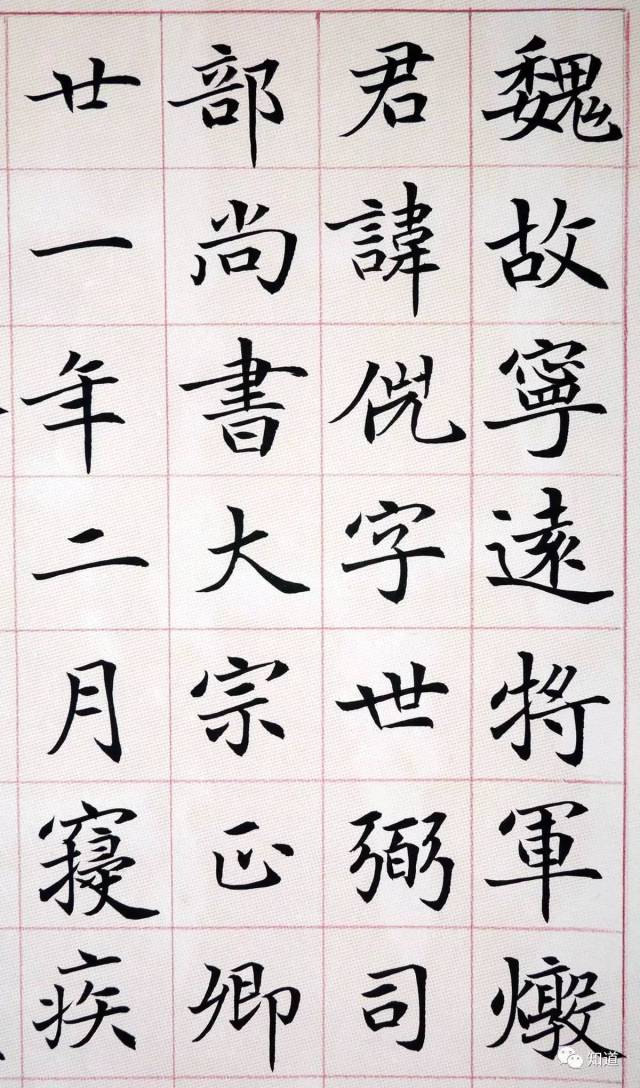 魏故寧遠將軍燉
君諱倪字世弼司
部尚書大宗正卿
廿一年二月寢疾
知道